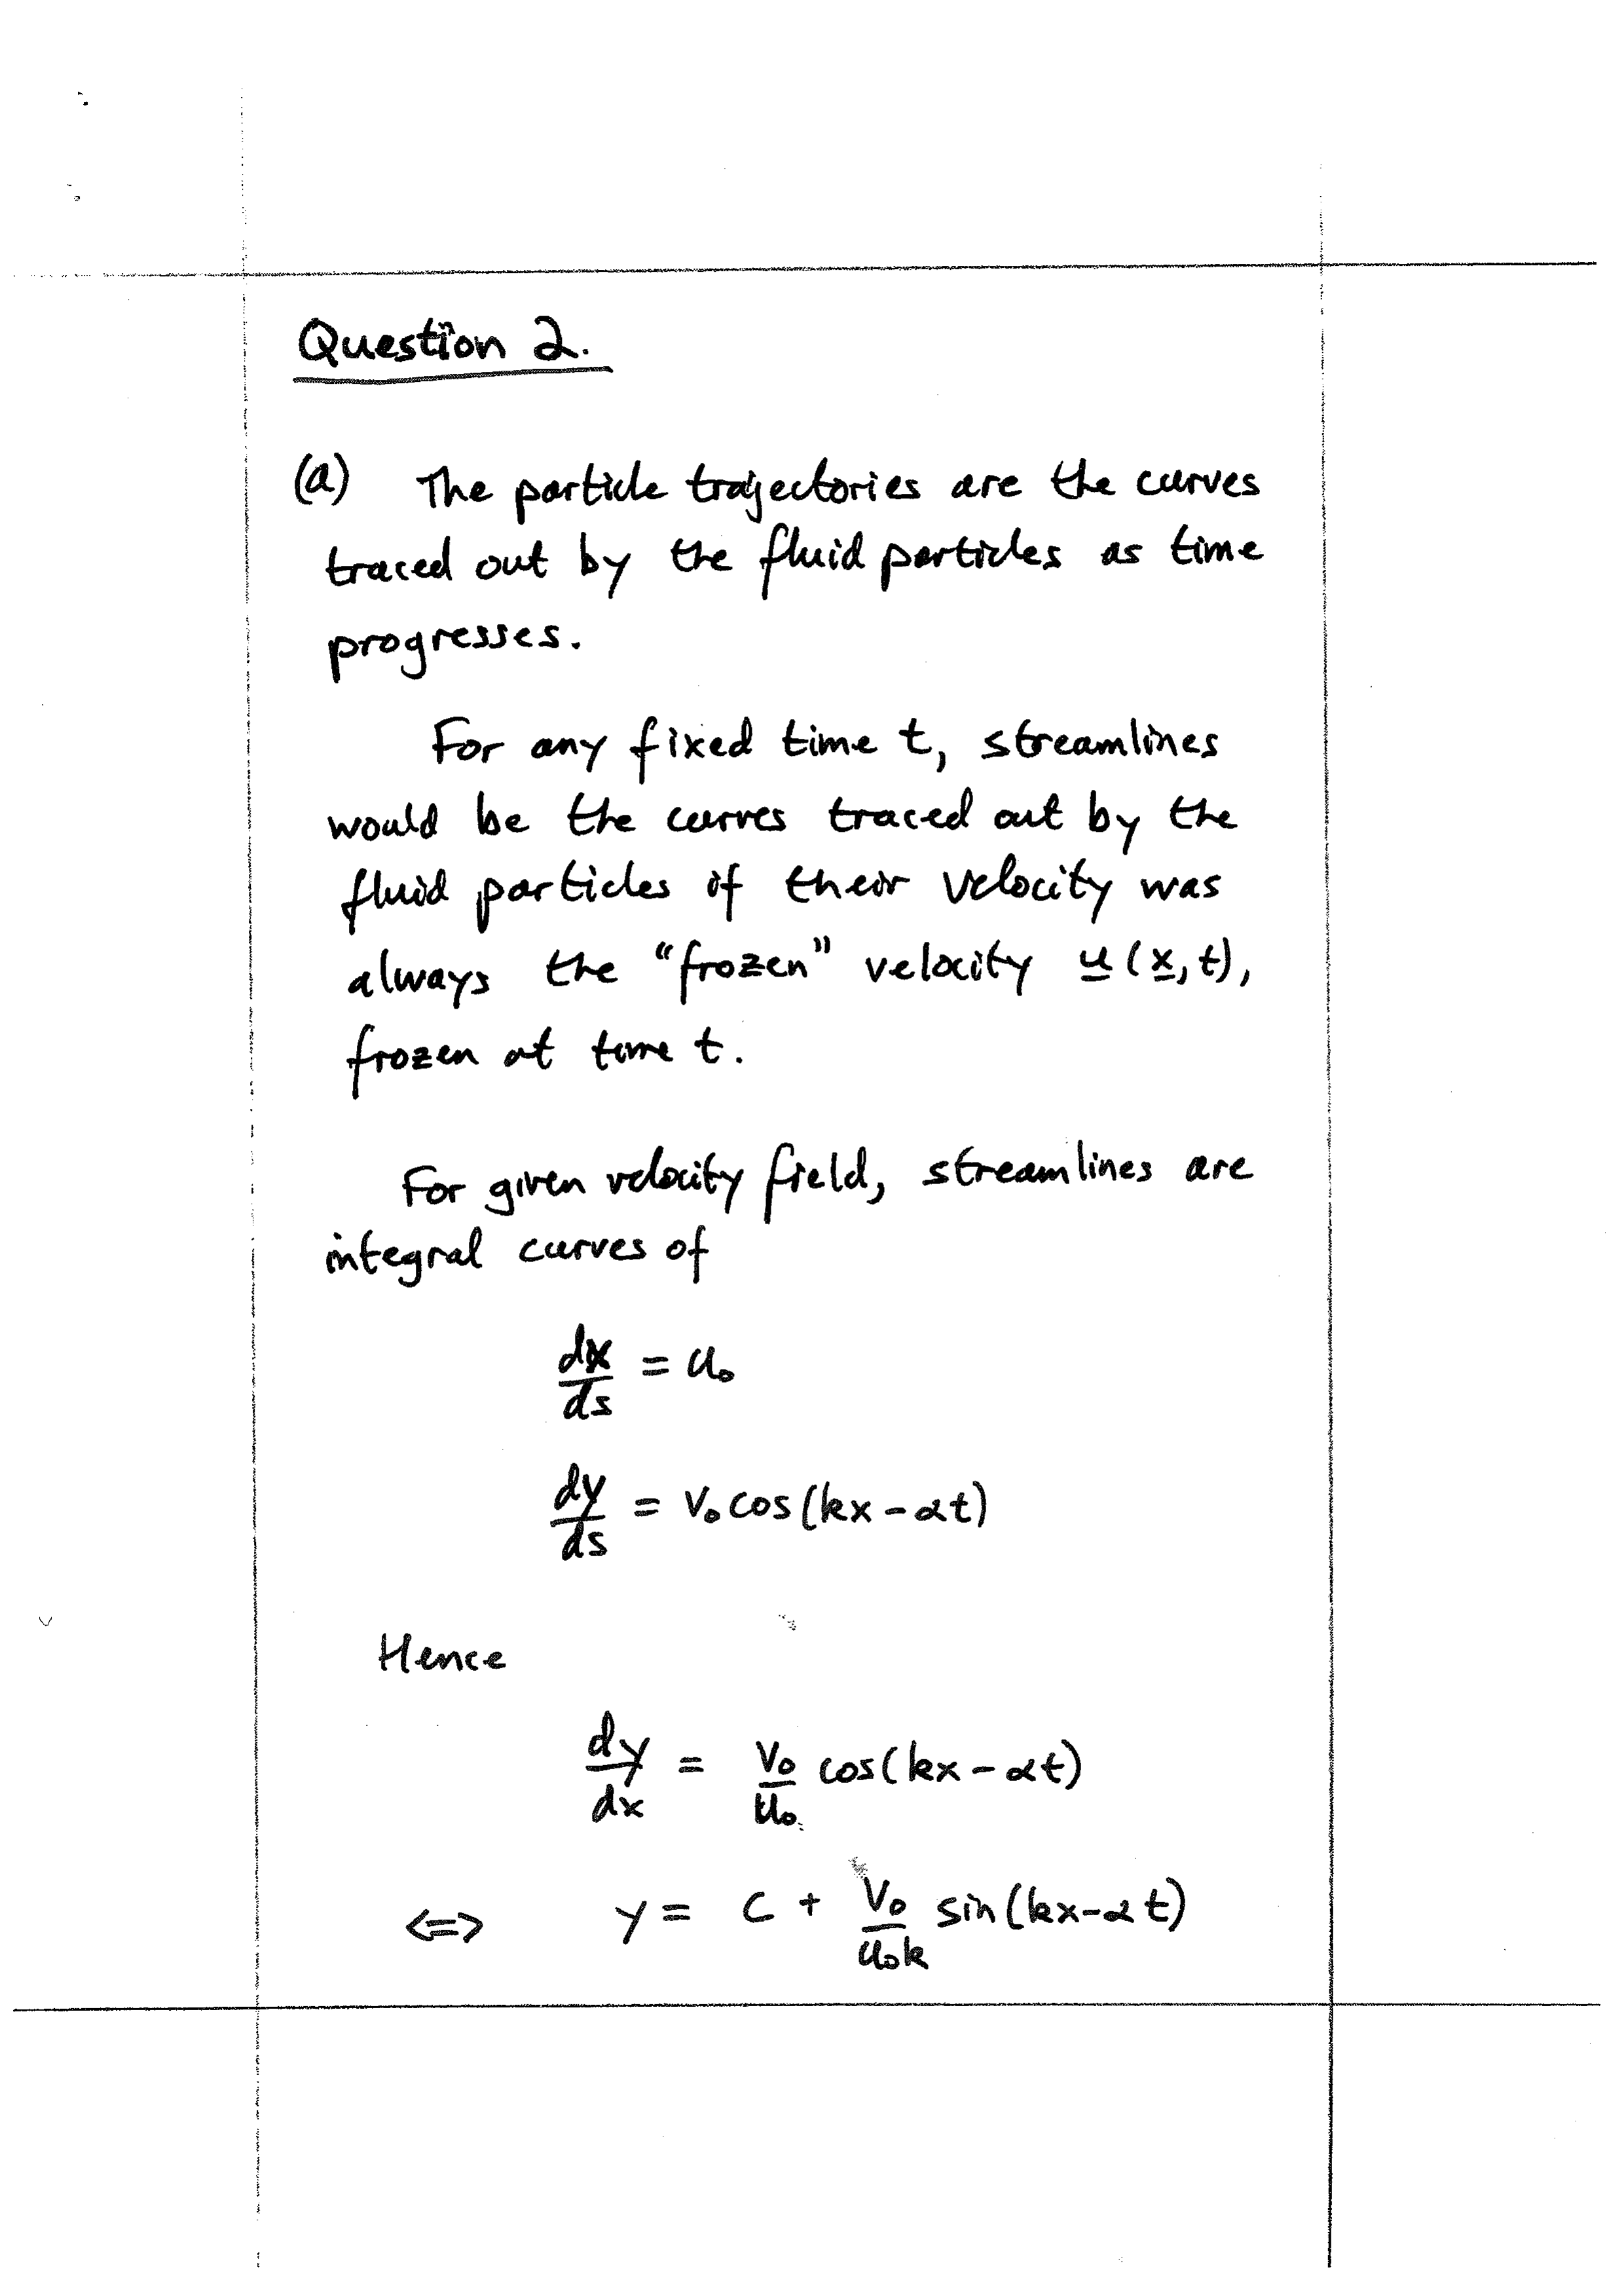 Question 2.
(a) The particle trajectories are the curves
traced out by the fluid particles as time
progresses.
For any fixed time t, streamlines
would be the curves traced out by the
fluid particles if their velocity was
always the "frozen" velocity u(x,t),
frozen at time t.
For given velocity field, streamlines are
integral curves of
dx/ds = u₀
dy/ds = v₀ cos(kx - αt)
Hence
dy/dx = v₀/u₀ cos(kx - αt)
<=> y = C + v₀/u₀k sin(kx-αt)